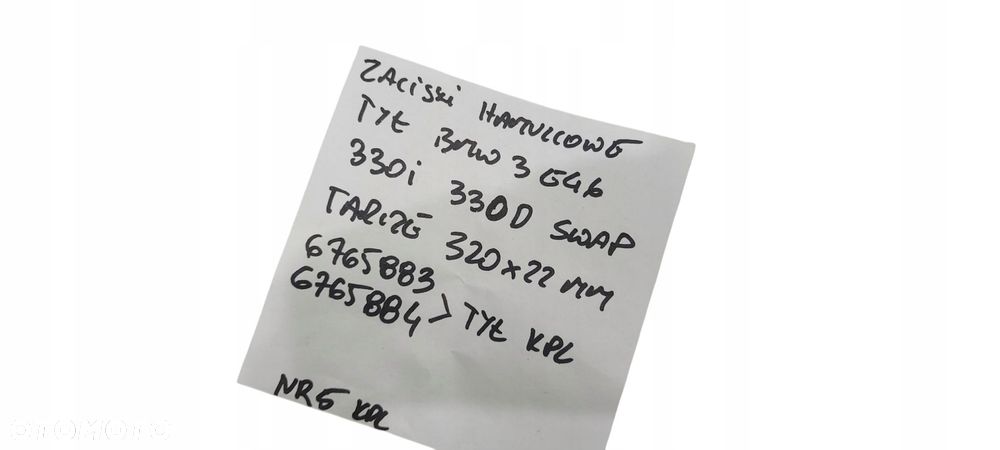 ZACISKI HAMULCOWE
TYŁ BMW 3 E46
330i 330D SWAP
TARCZE 320x22 mm
6765883
6765884 > TYŁ KPL
NR 5 KPL
OTOMOTO